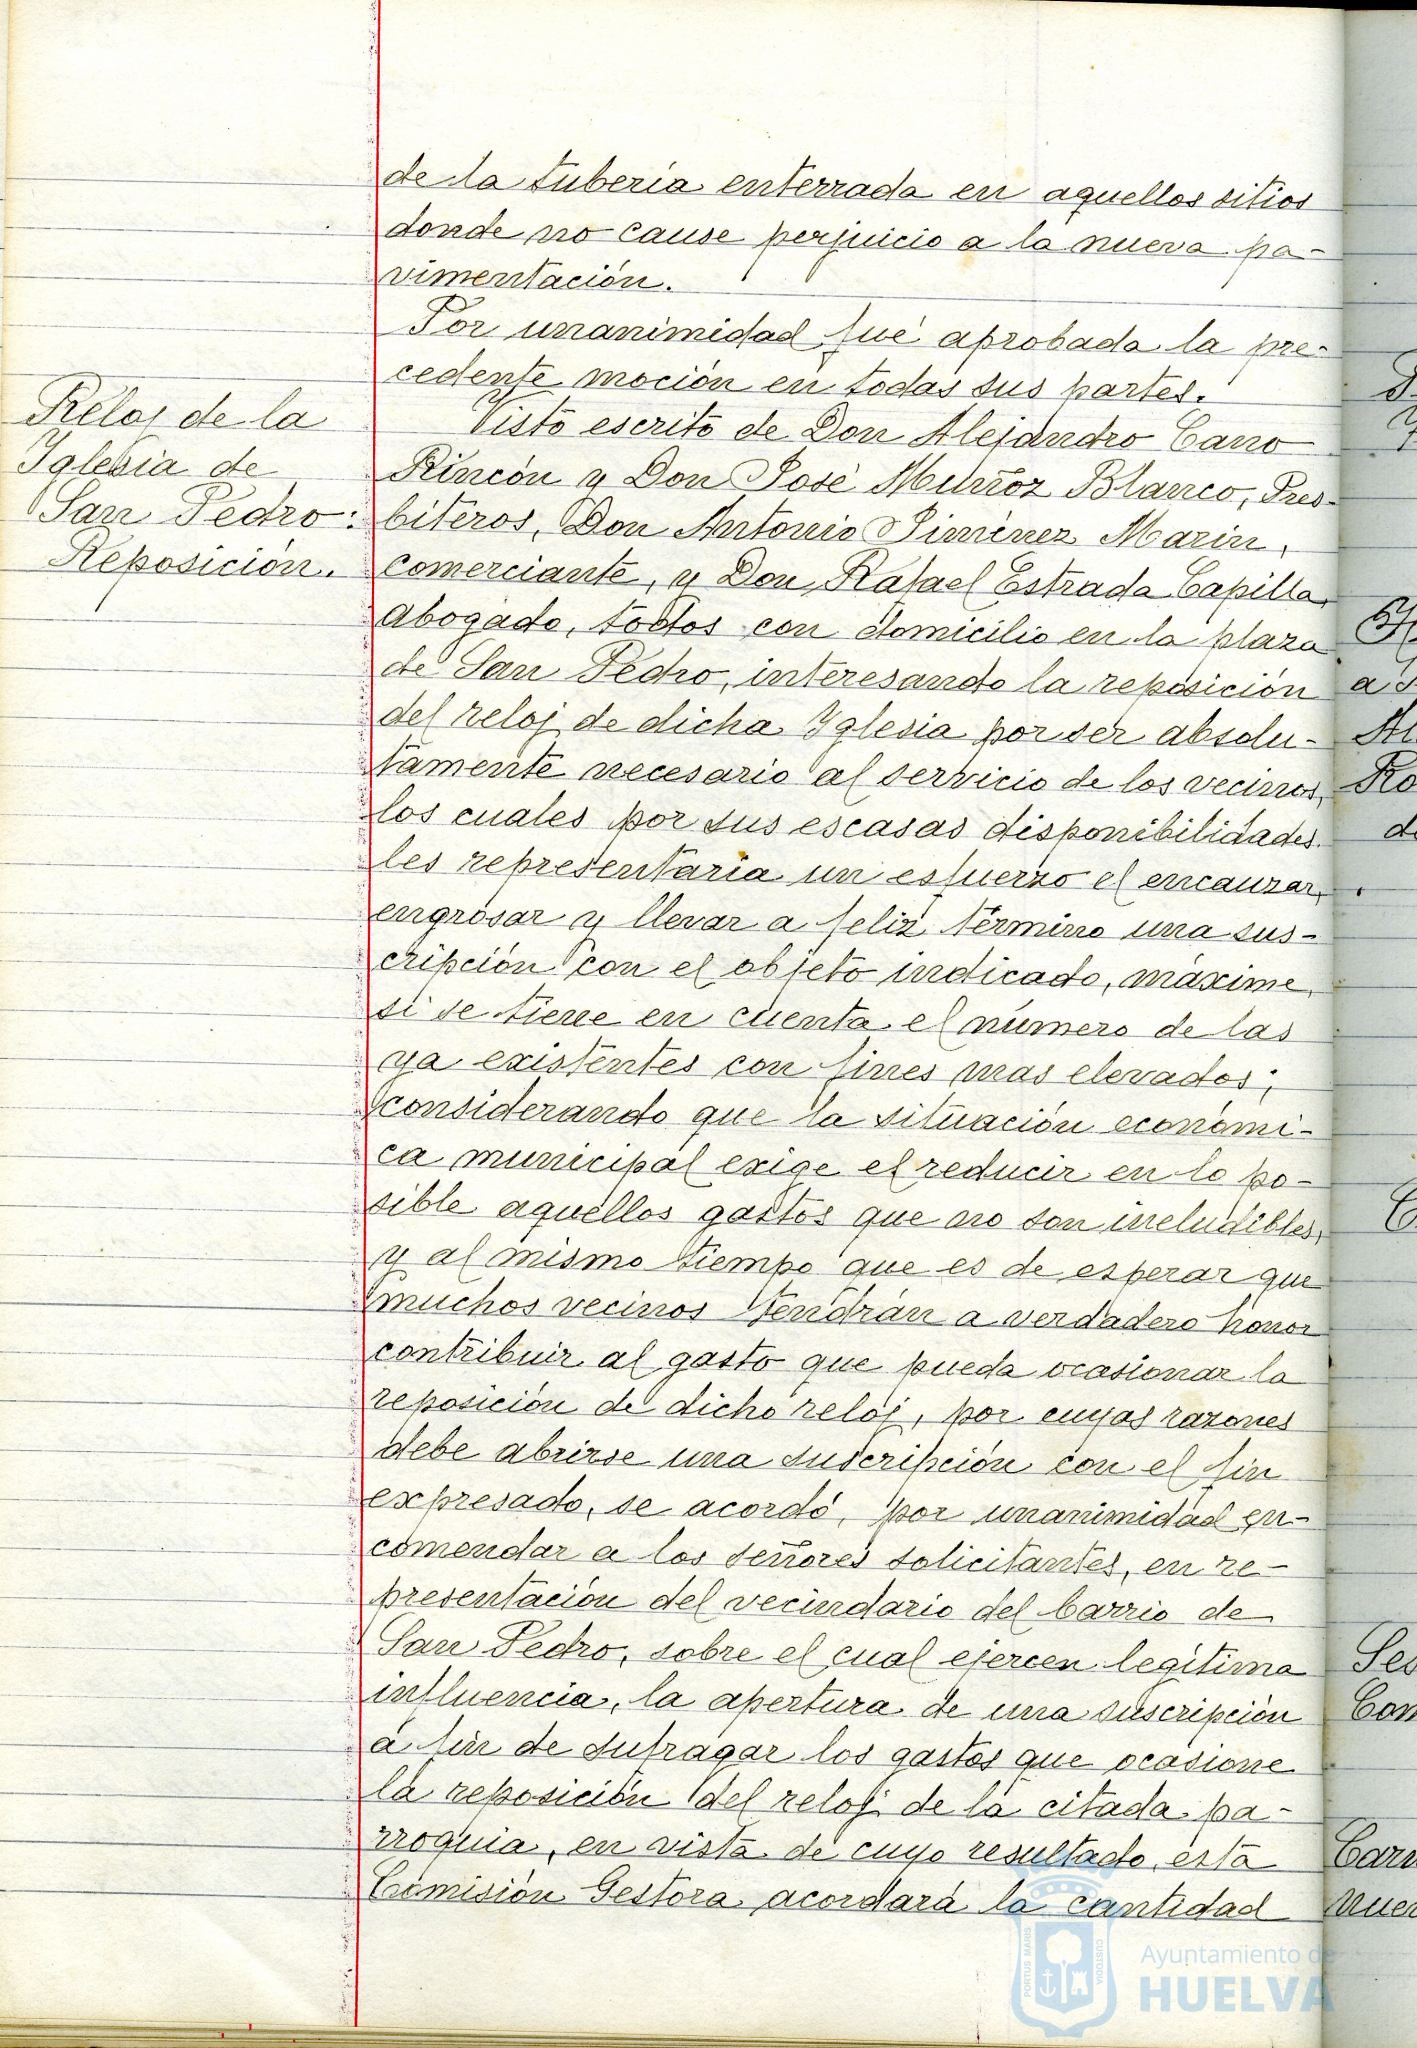 de la tubería enterrada en aquellos sitios
donde no cause perjuicio a la nueva pa-
vimentación.
Por unanimidad fué aprobada la pre-
cedente moción en todas sus partes.
Reloj de la
Iglesia de
San Pedro:
Reposición.
Visto escrito de Don Alejandro Cano
Rincón y Don José Muñoz Blanco, Pres-
biteros, Don Antonio Jiménez Marin,
comerciante, y Don Rafael Estrada Capilla,
abogado, todos con domicilio en la plaza
de San Pedro, interesando la reposición
del reloj de dicha Iglesia por ser absolu-
tamente necesario al servicio de los vecinos,
los cuales por sus escasas disponibilidades
les representaria un esfuerzo el encauzar,
engrosar y llevar a feliz término una sus-
cripción con el objeto indicado, máxime,
si se tiene en cuenta el número de las
ya existentes con fines mas elevados;
considerando que la situación económi-
ca municipal exige el reducir en lo po-
sible aquellos gastos que no son ineludibles,
y al mismo tiempo que es de esperar que
muchos vecinos tendrán a verdadero honor
contribuir al gasto que pueda ocasionar la
reposición de dicho reloj, por cuyas razones
debe abrirse una suscripción con el fin
expresado, se acordó, por unanimidad en-
comendar a los señores solicitantes, en re-
presentación del vecindario del barrio de
San Pedro, sobre el cual ejercen legítima
influencia, la apertura de una suscripción
a fin de sufragar los gastos que ocasione
la reposición del reloj de la citada pa-
rroquia, en vista de cuyo resultado, esta
Comisión Gestora acordará la cantidad
PORTUS MARIS
CUSTODIA
Ayuntamiento de
HUELVA